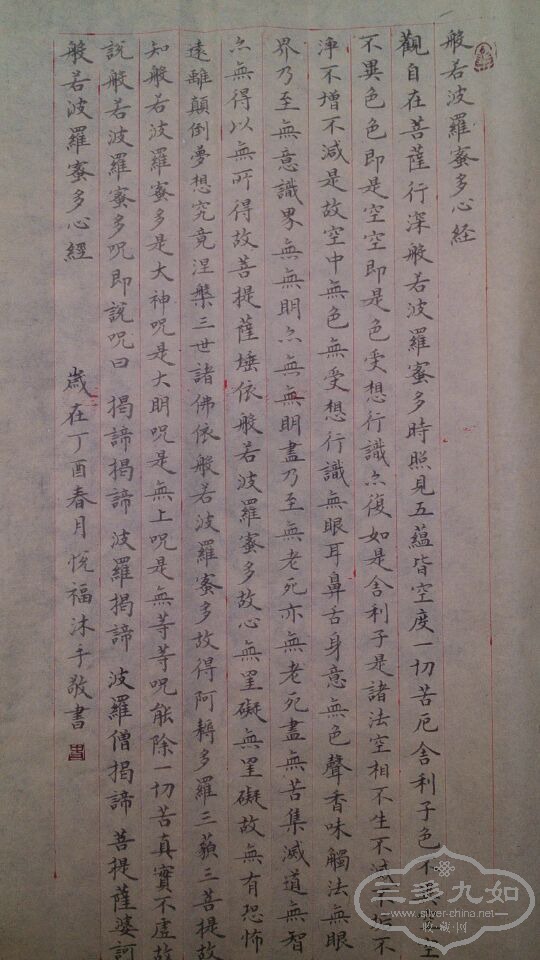 般若波羅蜜多心経
觀自在菩薩行深般若波羅蜜多時照見五蘊皆空度一切苦厄舍利子色不異空空
不異色色即是空空即是色受想行識亦復如是舍利子是諸法空相不生不滅不垢不
淨不增不減是故空中無色無受想行識無眼耳鼻舌身意無色聲香味觸法無眼
界乃至無意識界無無明亦無無明盡乃至無老死亦無老死盡無苦集滅道無智
亦無得以無所得故菩提薩埵依般若波羅蜜多故心無罣礙無罣礙故無有恐怖
遠離顛倒夢想究竟涅槃三世諸佛依般若波羅蜜多故得阿耨多羅三藐三菩提故
知般若波羅蜜多是大神呪是大明呪是無上呪是無等等呪能除一切苦真實不虛故
說般若波羅蜜多呪即說呪曰 揭諦揭諦 波羅揭諦 波羅僧揭諦 菩提薩婆訶
般若波羅蜜多心經 歲在丁酉春月悅福沐手敬書
三多九如
www.silver-china.net
收藏网